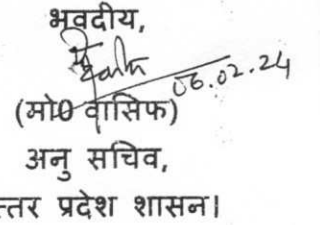 भवदीय,
06.02.24
(मो0 वासिफ)
अनु सचिव,
त्तर प्रदेश शासन।